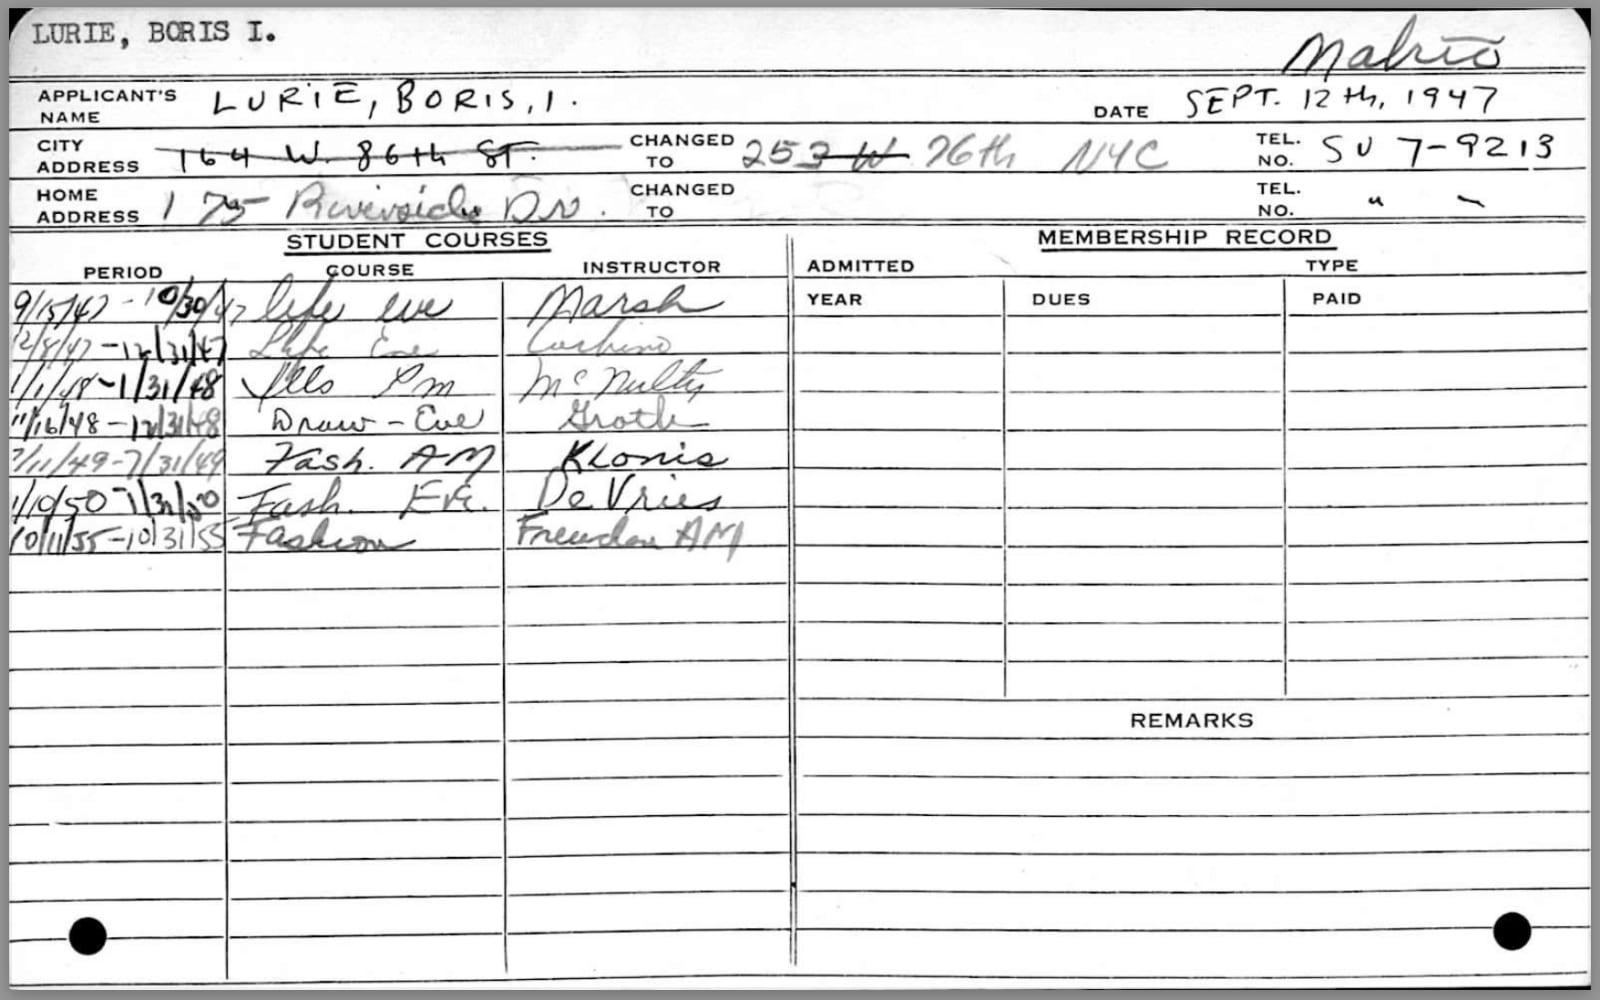 LURIE, BORIS I.
APPLICANT'S NAME LURIE, BORIS, I. DATE SEPT. 12th, 1947
CITY ADDRESS 164 W. 86th ST. CHANGED TO 253 W 76th NYC TEL. NO. SU 7-9213
HOME ADDRESS 175 Riverside Dr. CHANGED TO TEL. NO. " -
STUDENT COURSES MEMBERSHIP RECORD
PERIOD COURSE INSTRUCTOR ADMITTED TYPE
YEAR DUES PAID
9/15/47 - 10/30/47 life eve Marsh
12/8/47 - 12/31/47 Life Eve Corbino
1/1/48 - 1/31/48 Illo Pm McNulty
11/16/48 - 12/31/48 Draw - Eve Groth
7/11/49 - 7/31/49 Fash. AM Klonis
1/10/50 - 1/31/50 Fash. Eve. De Vries
10/11/55 - 10/31/55 Fashion AM
REMARKS